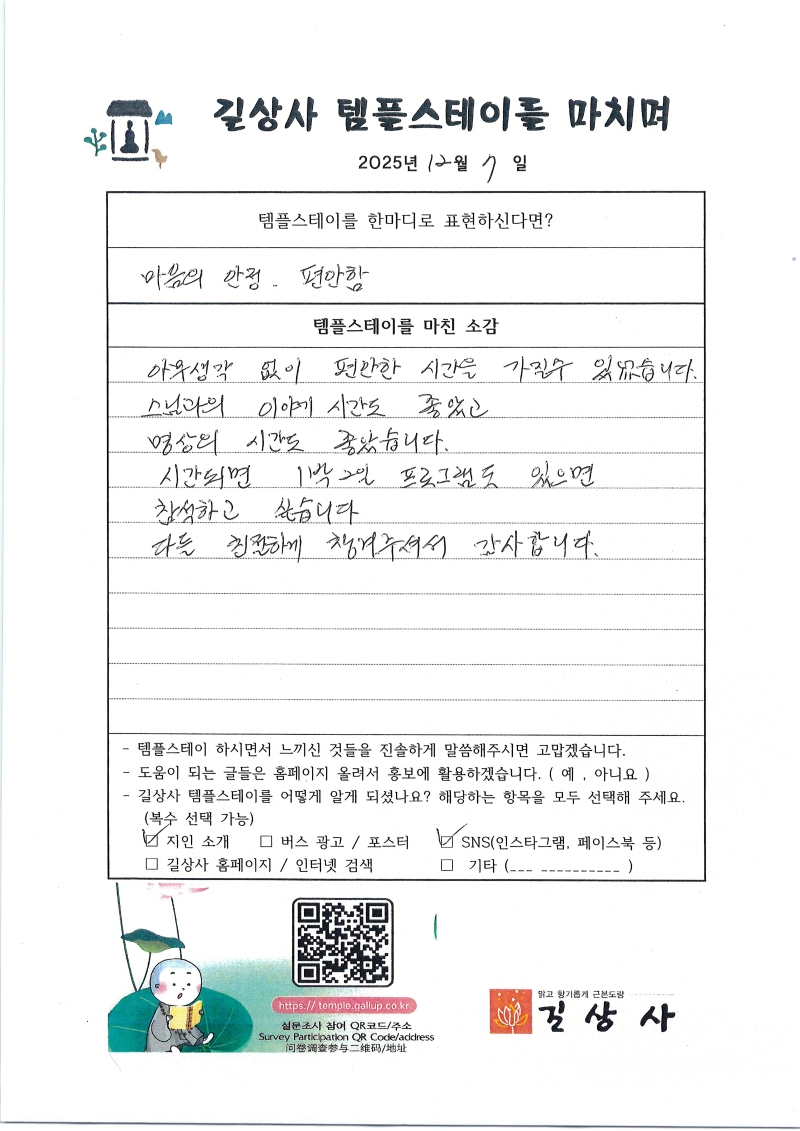 길상사 템플스테이를 마치며
2025년 12월 7일
템플스테이를 한마디로 표현하신다면?
마음의 안정. 편안함
템플스테이를 마친 소감
아무생각 없이 편안한 시간을 가질수 있었습니다.
스님과의 이야기 시간도 좋았고
명상의 시간도 좋았습니다.
시간되면 1박 2일 프로그램도 있으면
참석하고 싶습니다
다들 친절하게 챙겨주셔서 감사합니다.
- 템플스테이 하시면서 느끼신 것들을 진솔하게 말씀해주시면 고맙겠습니다.
- 도움이 되는 글들은 홈페이지 올려서 홍보에 활용하겠습니다. ( 예 , 아니요 )
- 길상사 템플스테이를 어떻게 알게 되셨나요? 해당하는 항목을 모두 선택해 주세요.
(복수 선택 가능)
☑ 지인 소개 □ 버스 광고 / 포스터 ☑ SNS(인스타그램, 페이스북 등)
□ 길상사 홈페이지 / 인터넷 검색 □ 기타 (___ __________ )
https:// temple.gallup.co.kr
설문조사 참여 QR코드/주소
Survey Participation QR Code/address
问卷调查参与二维码/地址
맑고 향기롭게 근본도량
길상사